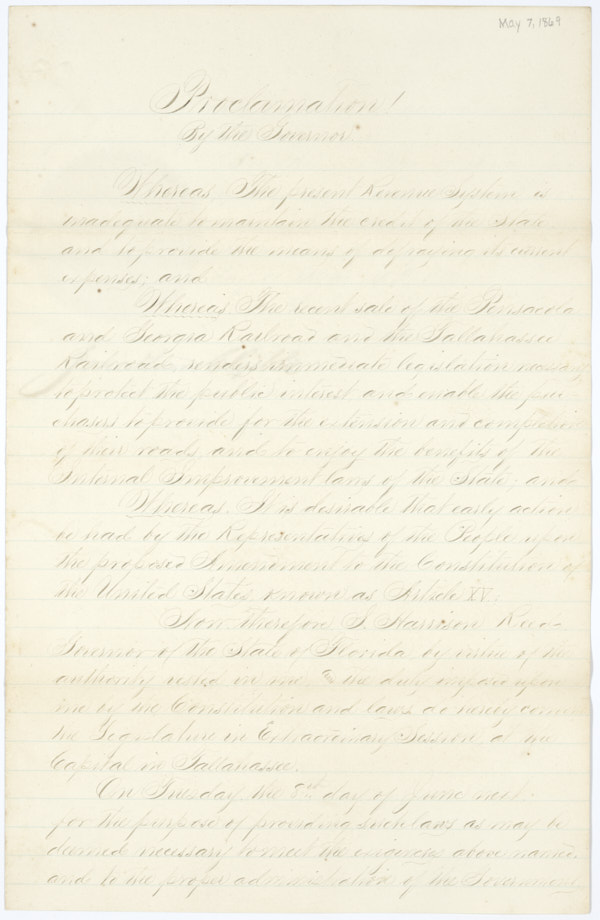 May 7, 1869
Proclamation!
By the Governor.
Whereas, The present Revenue System is
inadequate to maintain the credit of the State
and to provide the means of defraying its current
expenses; and
Whereas, The recent sale of the Pensacola
and Georgia Railroad and the Tallahassee
Railroad, renders immediate legislation necessary
to protect the public interest and enable the pur-
chasers to provide for the extension and completion
of their roads, and to enjoy the benefits of the
Internal Improvement laws of the State; and
Whereas, It is desirable that early action
be had by the Representatives of the People upon
the proposed Amendment to the Constitution of
the United States, known as Article XV.
Now therefore I, Harrison Reed
Governor of the State of Florida, by virtue of the
authority vested in me, & the duty imposed upon
me by the Constitution and laws, do hereby convene
the Legislature in Extraordinary Session, at the
Capital in Tallahassee.
On Tuesday, the day of June next,
for the purpose of providing such laws as may be
deemed necessary to meet the exigency above named
and to the proper administration of the Government.